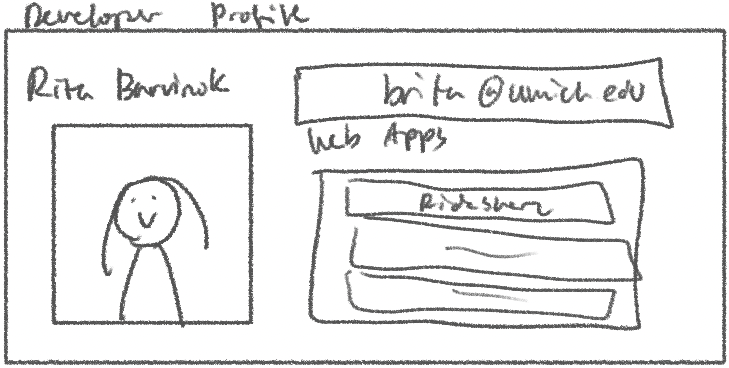 Developer Profile
Rita Barvinok
brita@umich.edu
Web Apps
Rideshare